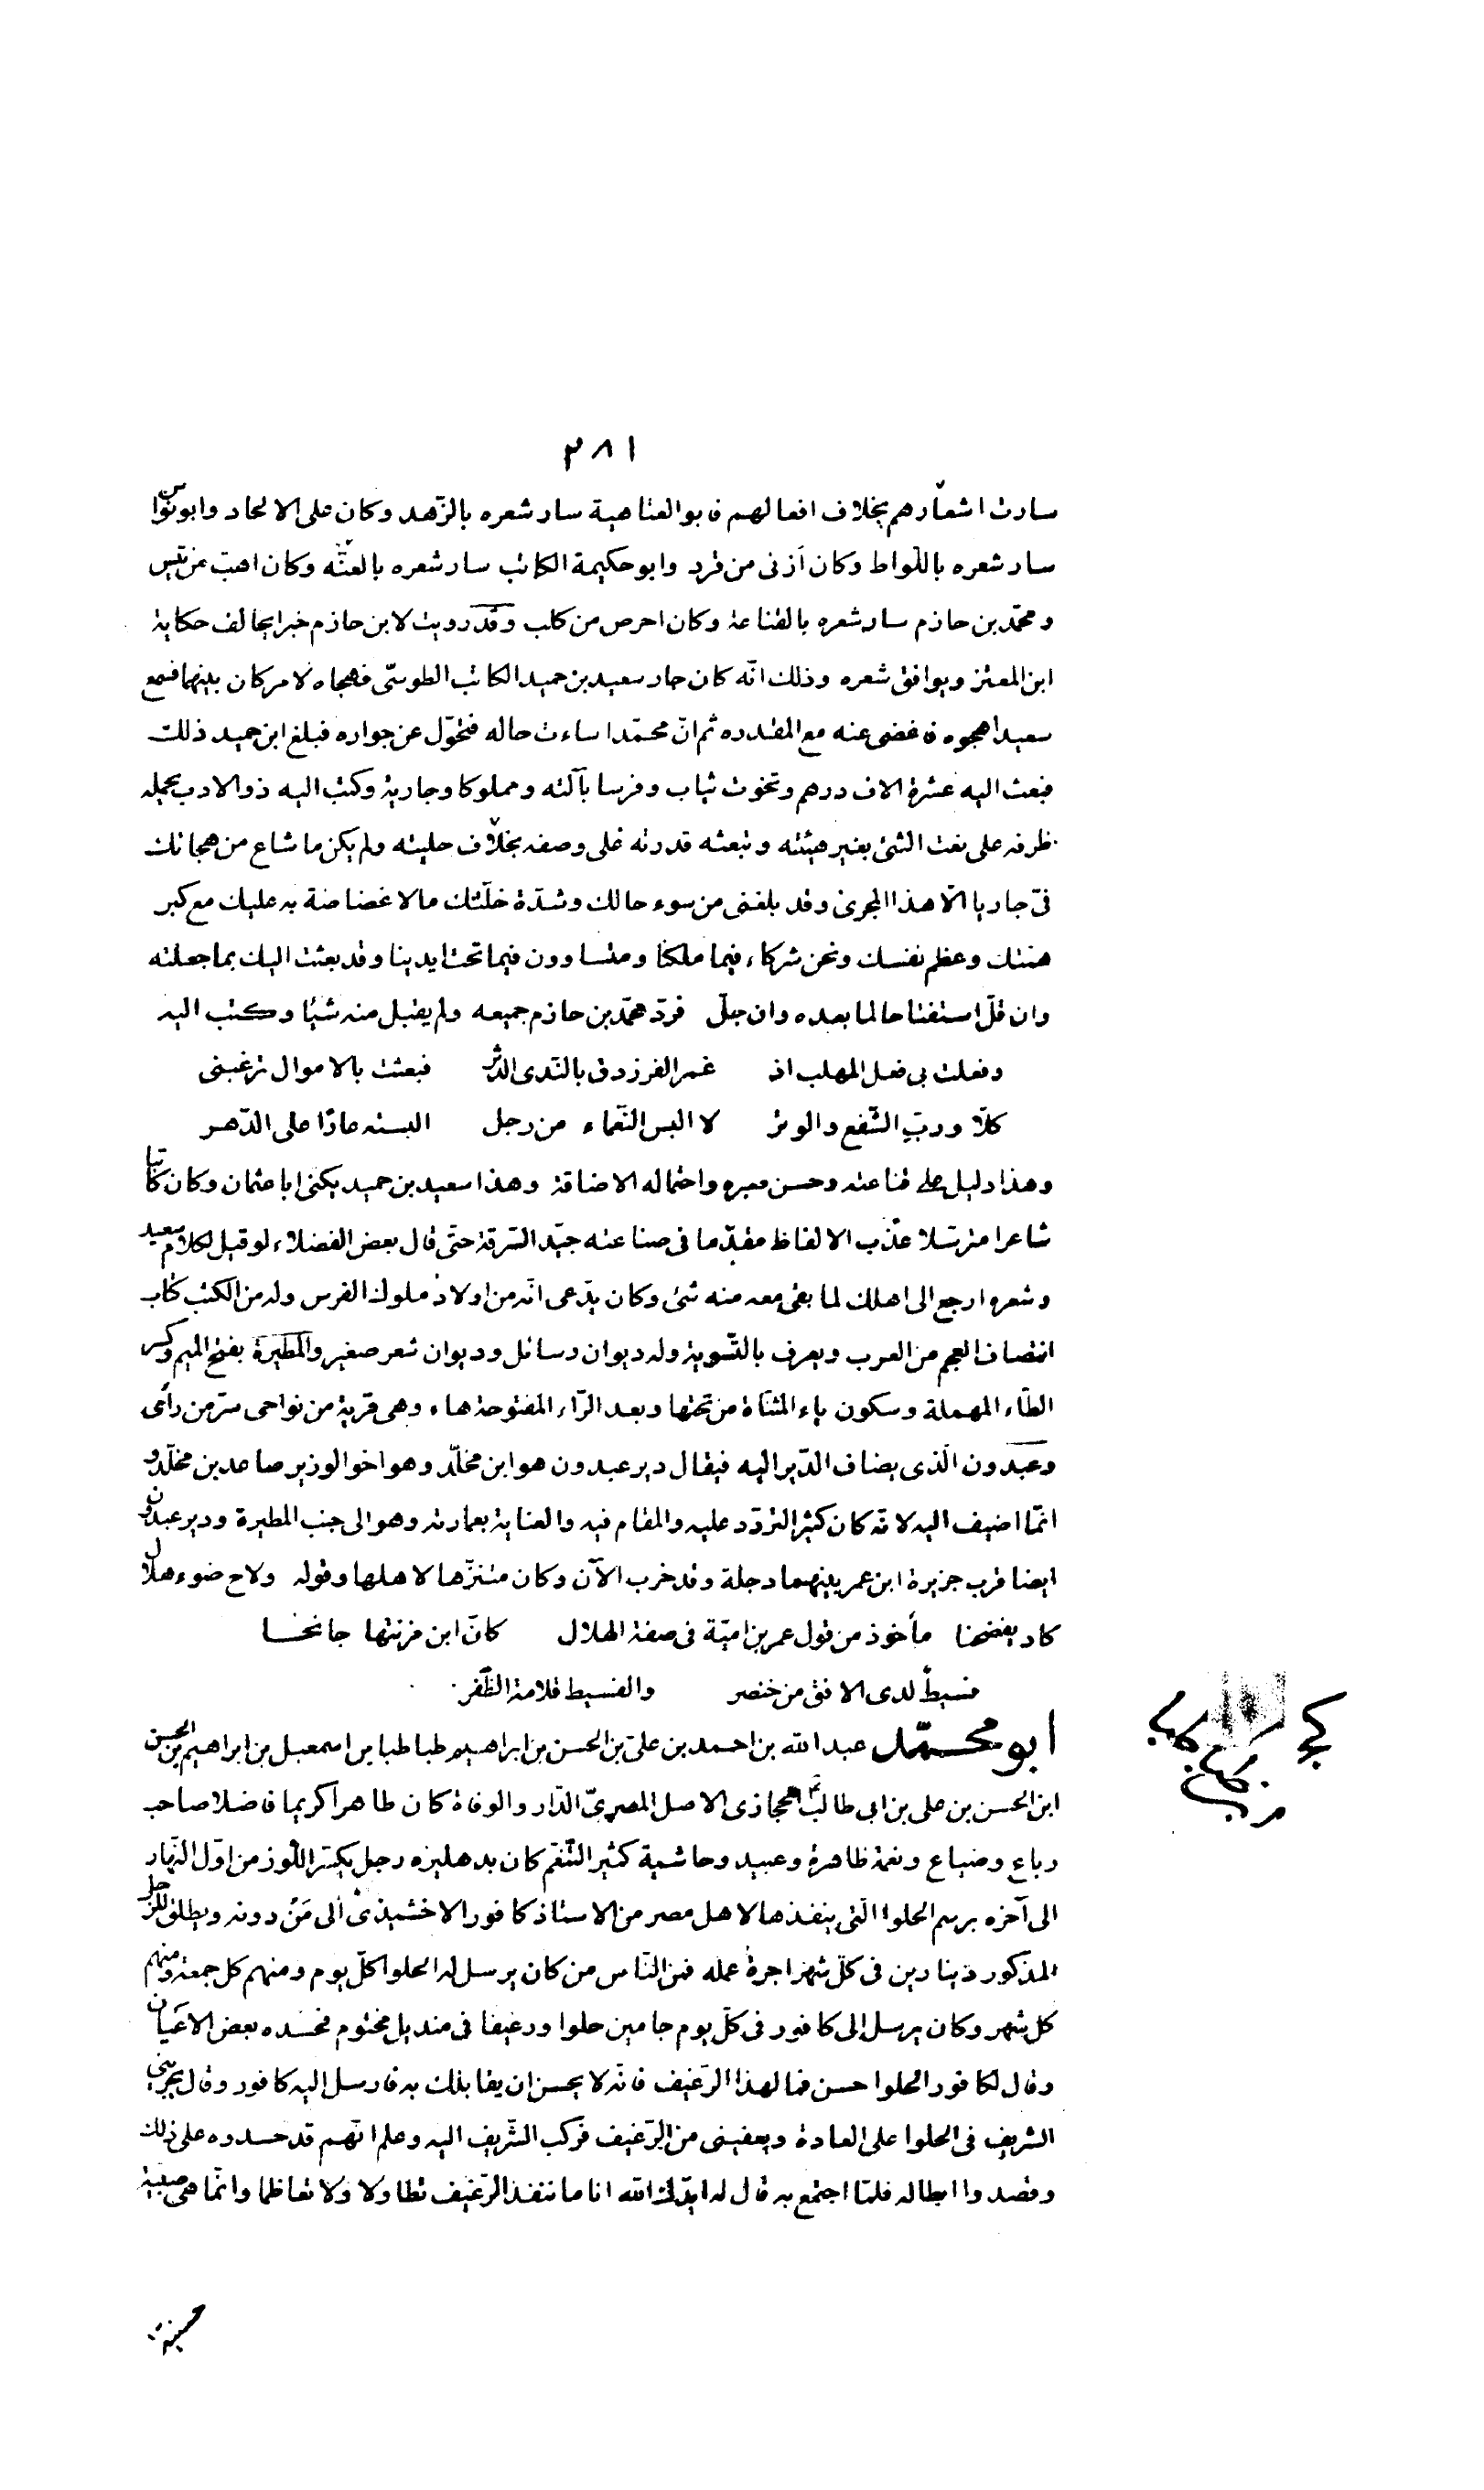 ٢٨١
سارت اشعارهم بخلاف افعالهم فابو العتاهية سار شعره بالزّهد وكان على الالحاد وابو نواس
سار شعره باللّواط وكان أزنى من قرد وابو حكيمة الكاتب سار شعره بالعنّة وكان اهبّ من تيس
ومحمّد بن حازم سار شعره بالقناعة وكان احرص من كلب وقد رويت لابن حازم خبرا يخالف حكاية
ابن المعتز ويوافق شعره وذلك انّه كان جار سعيد بن حميد الكاتب الطوسّى فهجاه لامر كان بينهما فسمع
سعيدا هجوه فاغضى عنه مع المقدره ثم انّ محمّدا ساءت حاله فتحوّل عن جواره فبلغ ابن حميد ذلك
فبعث اليه عشرة الاف درهم وتخوت ثياب وفرسا بآلته ومملوكا وجارية وكتب اليه ذو الادب يحمله
ظرفه على نعت الشئ بغير هيئته وتبعثه قدرته على وصفه بخلاف حليته ولم يكن ما شاع من هجائك
فىّ جاريا الّا هذا المجرى وقد بلغنى من سوء حالك وشدّة خلّتك مالا غضاضة به عليك مع كبر
همتك وعظم نفسك ونحن شركاء فيما ملكنا ومتساوون فيما تحت ايدينا وقد بعثت اليك بما جعلته
وان قلّ استفتاحا لما بعده وان جلّ فردّ محمّد بن حازم جميعه ولم يقبل منه شيئا وكتب اليه
وفعلت بى فعل المهلب اذ غمر الفرزدق بالنّدى الدثر فبعثت بالاموال ترغبنى
كلّا وربّ الشّفع والوتر لا البس النّعماء من رجل البسته عارًا على الدّهر
وهذا دليل على قناعته وحسن صبره واحتماله الاضاقة وهذا سعيد بن حميد يكنى ابا عثمان وكان كاتبا
شاعرا مترسّلا عذب الالفاظ مقدّما فى صناعته جيّد السّرقة حتّى قال بعض الفضلاء لو قيل لكلام سعيد
وشعره ارجع الى اهلك لما بقى معه منه شئ وكان يدّعى انّه من اولاد ملوك الفرس وله من الكتب كتاب
انتصاف العجم من العرب ويعرف بالتّسوية وله ديوان رسائل وديوان شعر صغير والمطيرة بفتح الميم وكسر
الطّاء المهملة وسكون ياء المثنّاة من تحتها وبعد الرّاء المفتوحة هاء وهى قرية من نواحى سرّ من رأى
وعبدون الّذى يضاف الدّير اليه فيقال دير عبدون هو ابن مخلّد وهو اخو الوزير صاعد بن مخلّد و
انّما اضيف اليه لانّه كان كثير التردّد عليه والمقام فيه والعناية بعمارته وهو الى جنب المطيرة ودير عبدون
ايضا قرب جزيرة ابن عمر بينهما دجلة وقد خرب الآن وكان متنزّها لاهلها وقوله ولاح ضوء هلال
كاد يفضحنا مأخوذ من قول عمر بن اميّة فى صفة الهلال كانّ ابن مزنتها جانحا
فسيط لدى الافق من خنصر والفسيط قلامة الظّفر
ابو محمّد عبد الله بن احمد بن علىّ بن الحسن بن ابراهيم طباطبا بن اسمعيل بن ابراهيم بن الحسن
ابن الحسن بن على بن ابى طالب الحجازى الاصل المصرىّ الدّار والوفاة كان طاهرا كريما فاضلا صاحب
رباع وضياع ونعمة ظاهرة وعبيد وحاشية كثير التّنعّم كان بدهليزه رجل يكسّر اللّوز من اوّل النّهار
الى آخره برسم الحلوا الّتى ينفذها لاهل مصر من الاستاذ كافور الاخشيدى الى مَن دونه ويطلق للرّجل
المذكور دينارين فى كلّ شهر اجرة عمله فمن النّاس من كان يرسل له الحلوا كلّ يوم ومنهم كل جمعة ومنهم
كل شهر وكان يرسل الى كافور فى كلّ يوم جامين حلوا ورغيفا فى منديل مختوم فحسده بعض الاعيان
وقال لكافور الحلوا حسن فما لهذا الرّغيف فانّه لا يحسن ان يقابلك به فارسل اليه كافور وقال يجرينى
الشريف فى الحلوا على العادة ويعفينى من الرّغيف فركب الشّريف اليه وعلم انّهم قد حسدوه على ذلك
وقصدوا ابطاله فلمّا اجتمع به قال له ايّدك الله انا ما ننفذ الرّغيف تطاولا ولا تعاظما وانّما هى صبية
حسنية